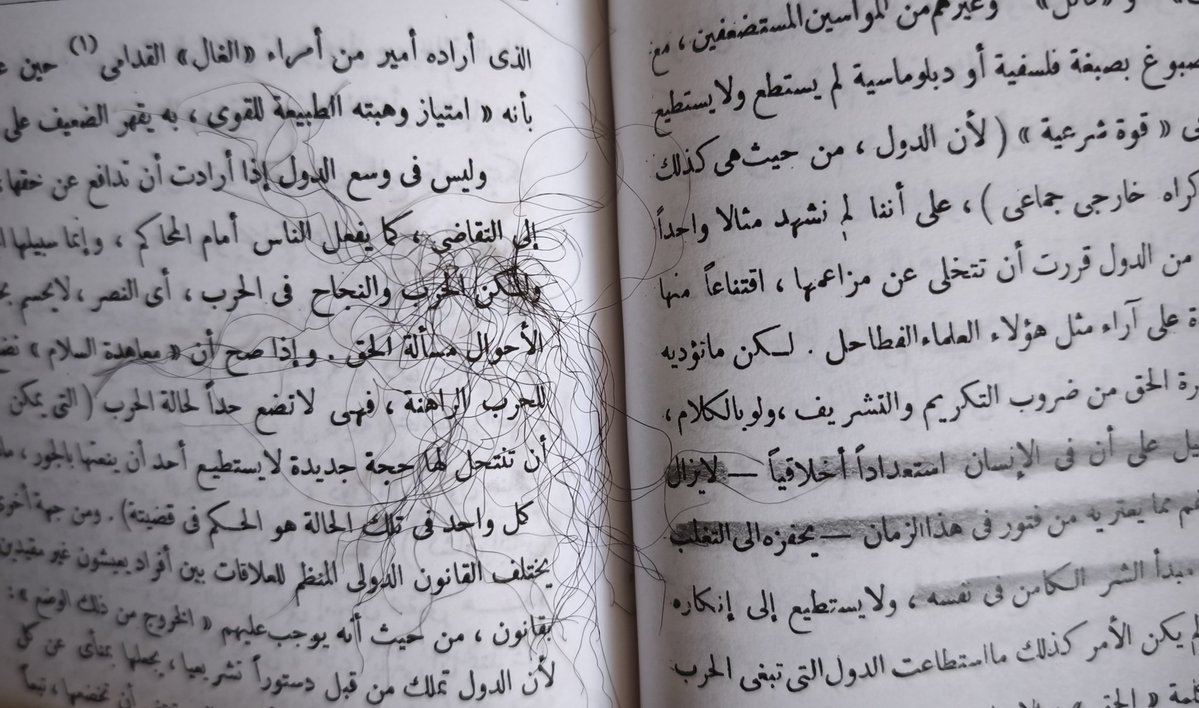 وغيرهم من المواسين المستضعفين ، مع
بصبغة فلسفية أو دبلوماسية لم يستطع ولا يستطيع
« قوة شرعية » ( لأن الدول ، من حيث هى كذلك
خارجى جماعى ) ، على أننا لم نشهد مثالا واحداً
من الدول قررت أن تتخلى عن مزاعمها ، اقتناعاً منها
على آراء مثل هؤلاء العلماء الفطاحل . لسكن ماتؤديه
الحق من ضروب التكريم والتشريف ، ولو بالكلام ،
على أن فى الإنسان استعداداً أخلاقياً — لايزال
مما يعتريه من فتور فى هذا الزمان — يحفزه الى التغلب
مبدأ الشر الكامن فى نفسه ، ولا يستطيع إلى إنكاره
يكن الأمر كذلك ما استطاعت الدول التى تبغى الحرب
الذى أراده أمير من أمراء « الغال » القدامى (١) حين
بأنه « امتياز وهبته الطبيعة للقوى ، به يقهر الضعيف على
وليس فى وسع الدول إذا أرادت أن تدافع عن حقها
إلى التقاضى ، كما يفعل الناس أمام المحاكم ، وإنما سبيلها
ولكن الحرب والنجاح فى الحرب ، أى النصر ، لايحسم
الأحوال مسألة الحق . وإذا صح أن « معاهدة السلام »
للحرب الراهنة ، فهى لاتضع حداً لحالة الحرب ( التى يمكن
أن تنتحل لها حجة جديدة لايستطيع أحد أن ينعتها بالجور ،
كل واحد فى تلك الحالة هو الحكم فى قضيته ) . ومن جهة أخرى
يختلف القانون الدولى المنظم للعلاقات بين أفراد يعيشون غير مقيدين
بقانون ، من حيث أنه يوجب عليهم « الخروج من ذلك الوضع » :
لأن الدول تملك من قبل دستوراً تشريعيا ، يجعلها بمنأى عن كل